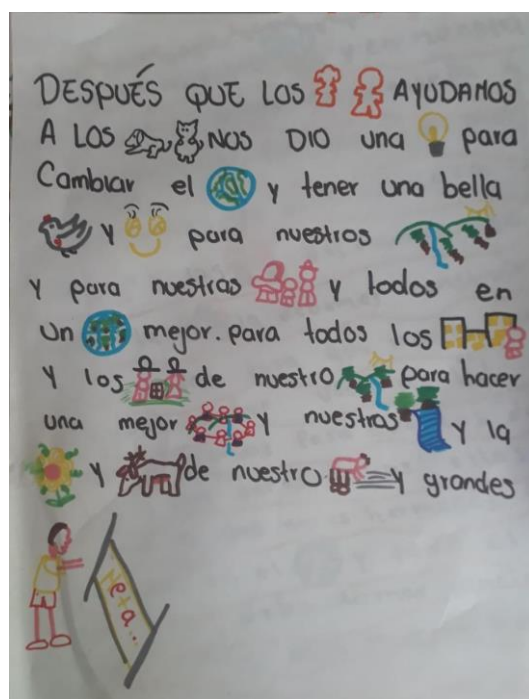 DESPUÉS QUE LOS AYUDAMOS
A LOS NOS DIO una para
Cambiar el y tener una bella
y para nuestros
y para nuestras y todos en
un mejor. para todos los
y los de nuestro para hacer
una mejor y nuestros y la
y de nuestro y grandes
Meta...